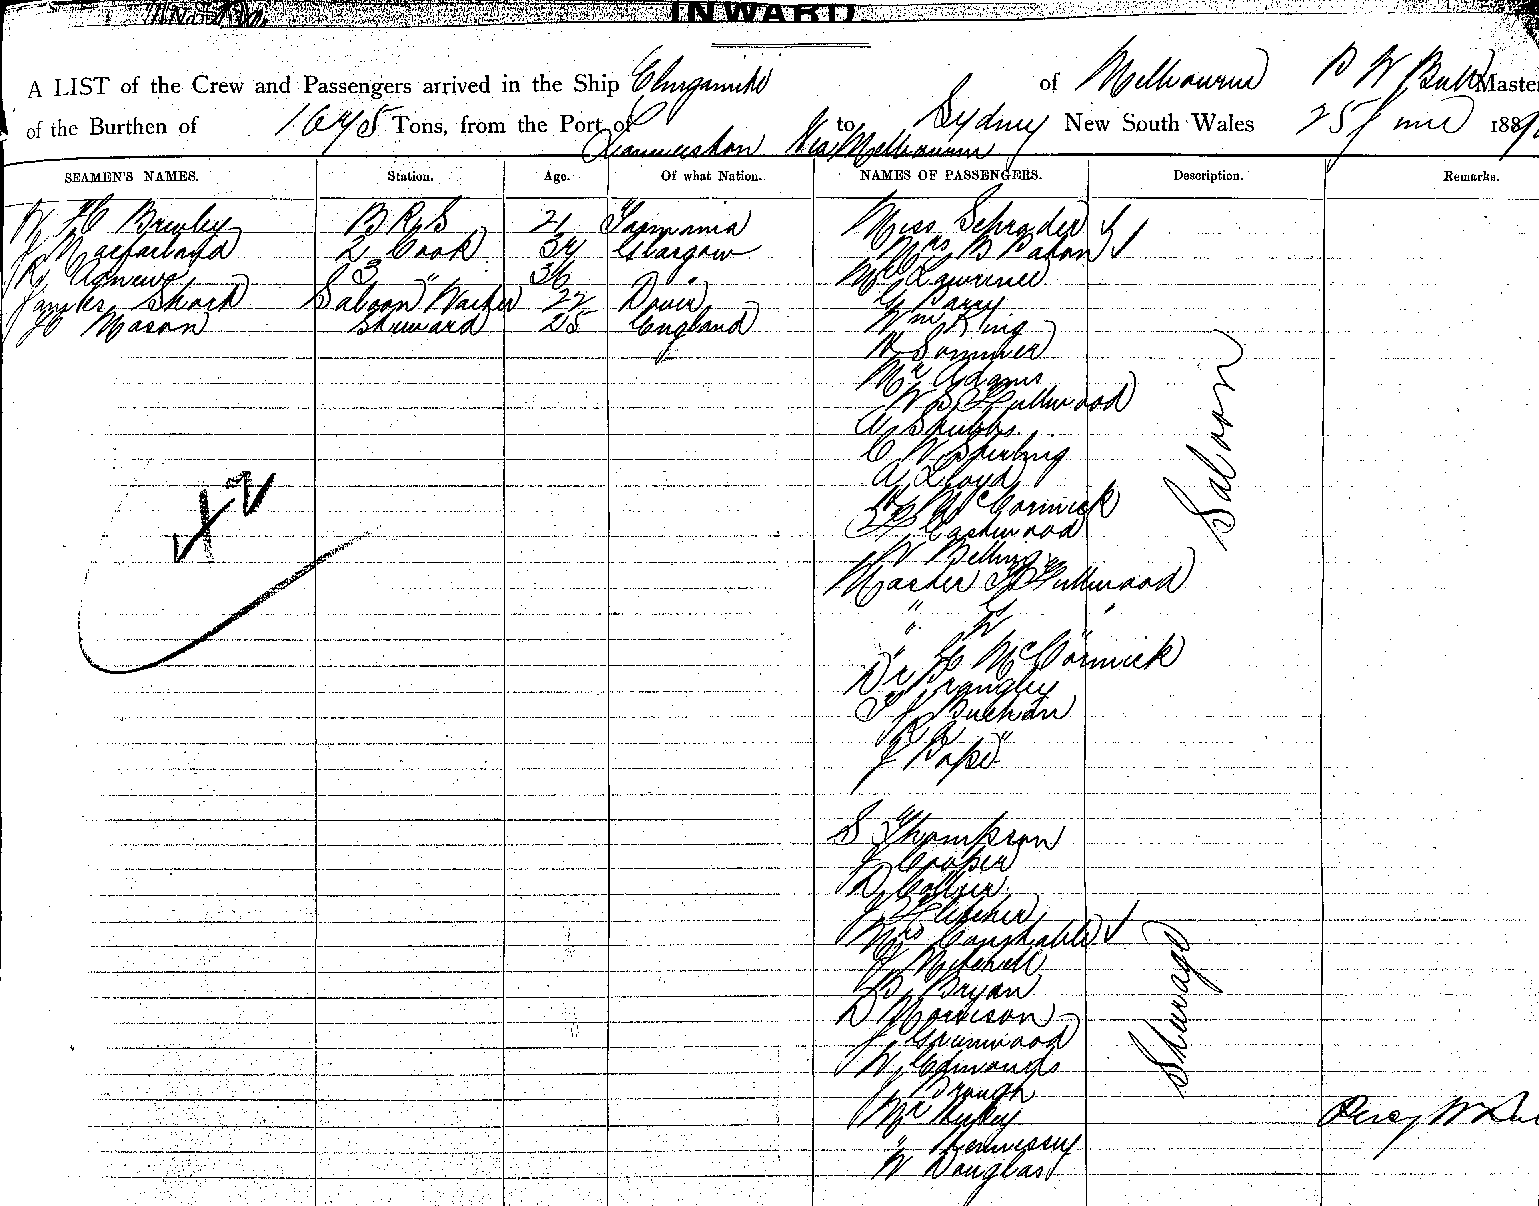 INWARD.
A LIST of the Crew and Passengers arrived in the Ship Elingamite of Melbourne P W Bull Master
of the Burthen of 1675 Tons, from the Port of Launceston via Melbourne to Sydney New South Wales 25 June 189
SEAMEN'S NAMES. Station. Age. Of what Nation. NAMES OF PASSENGERS. Description. Remarks.
Brewley B R S 21 Tasmania Miss Schrader
J Macfarland 2 Cook 34 Glasgow Mrs B Baton
R Agnew 3 " 36 " Mr Lawrence
James Shark Saloon Waiter 22 Dover G Barry
Mason Steward 25 England Wm King
H Sommer
Mr Adams
W S Fullwood
A Stubbs
C W Sterling
A Lloyd
McCormick
Eastwood
W Belling
Master Fullwood
" G "
" "
" H McCormick
Dr Langley
T J Buchan
R R "
J Pope
Saloon
S Thompson
J Cooper
D Collier
J Fletcher
Mrs Constable
J Mitchell
B Bryan
D Morrison
J Greenwood
W Edmonds
J Brough
Mr
" Hennessy
W Douglas
Steerage
Percy W